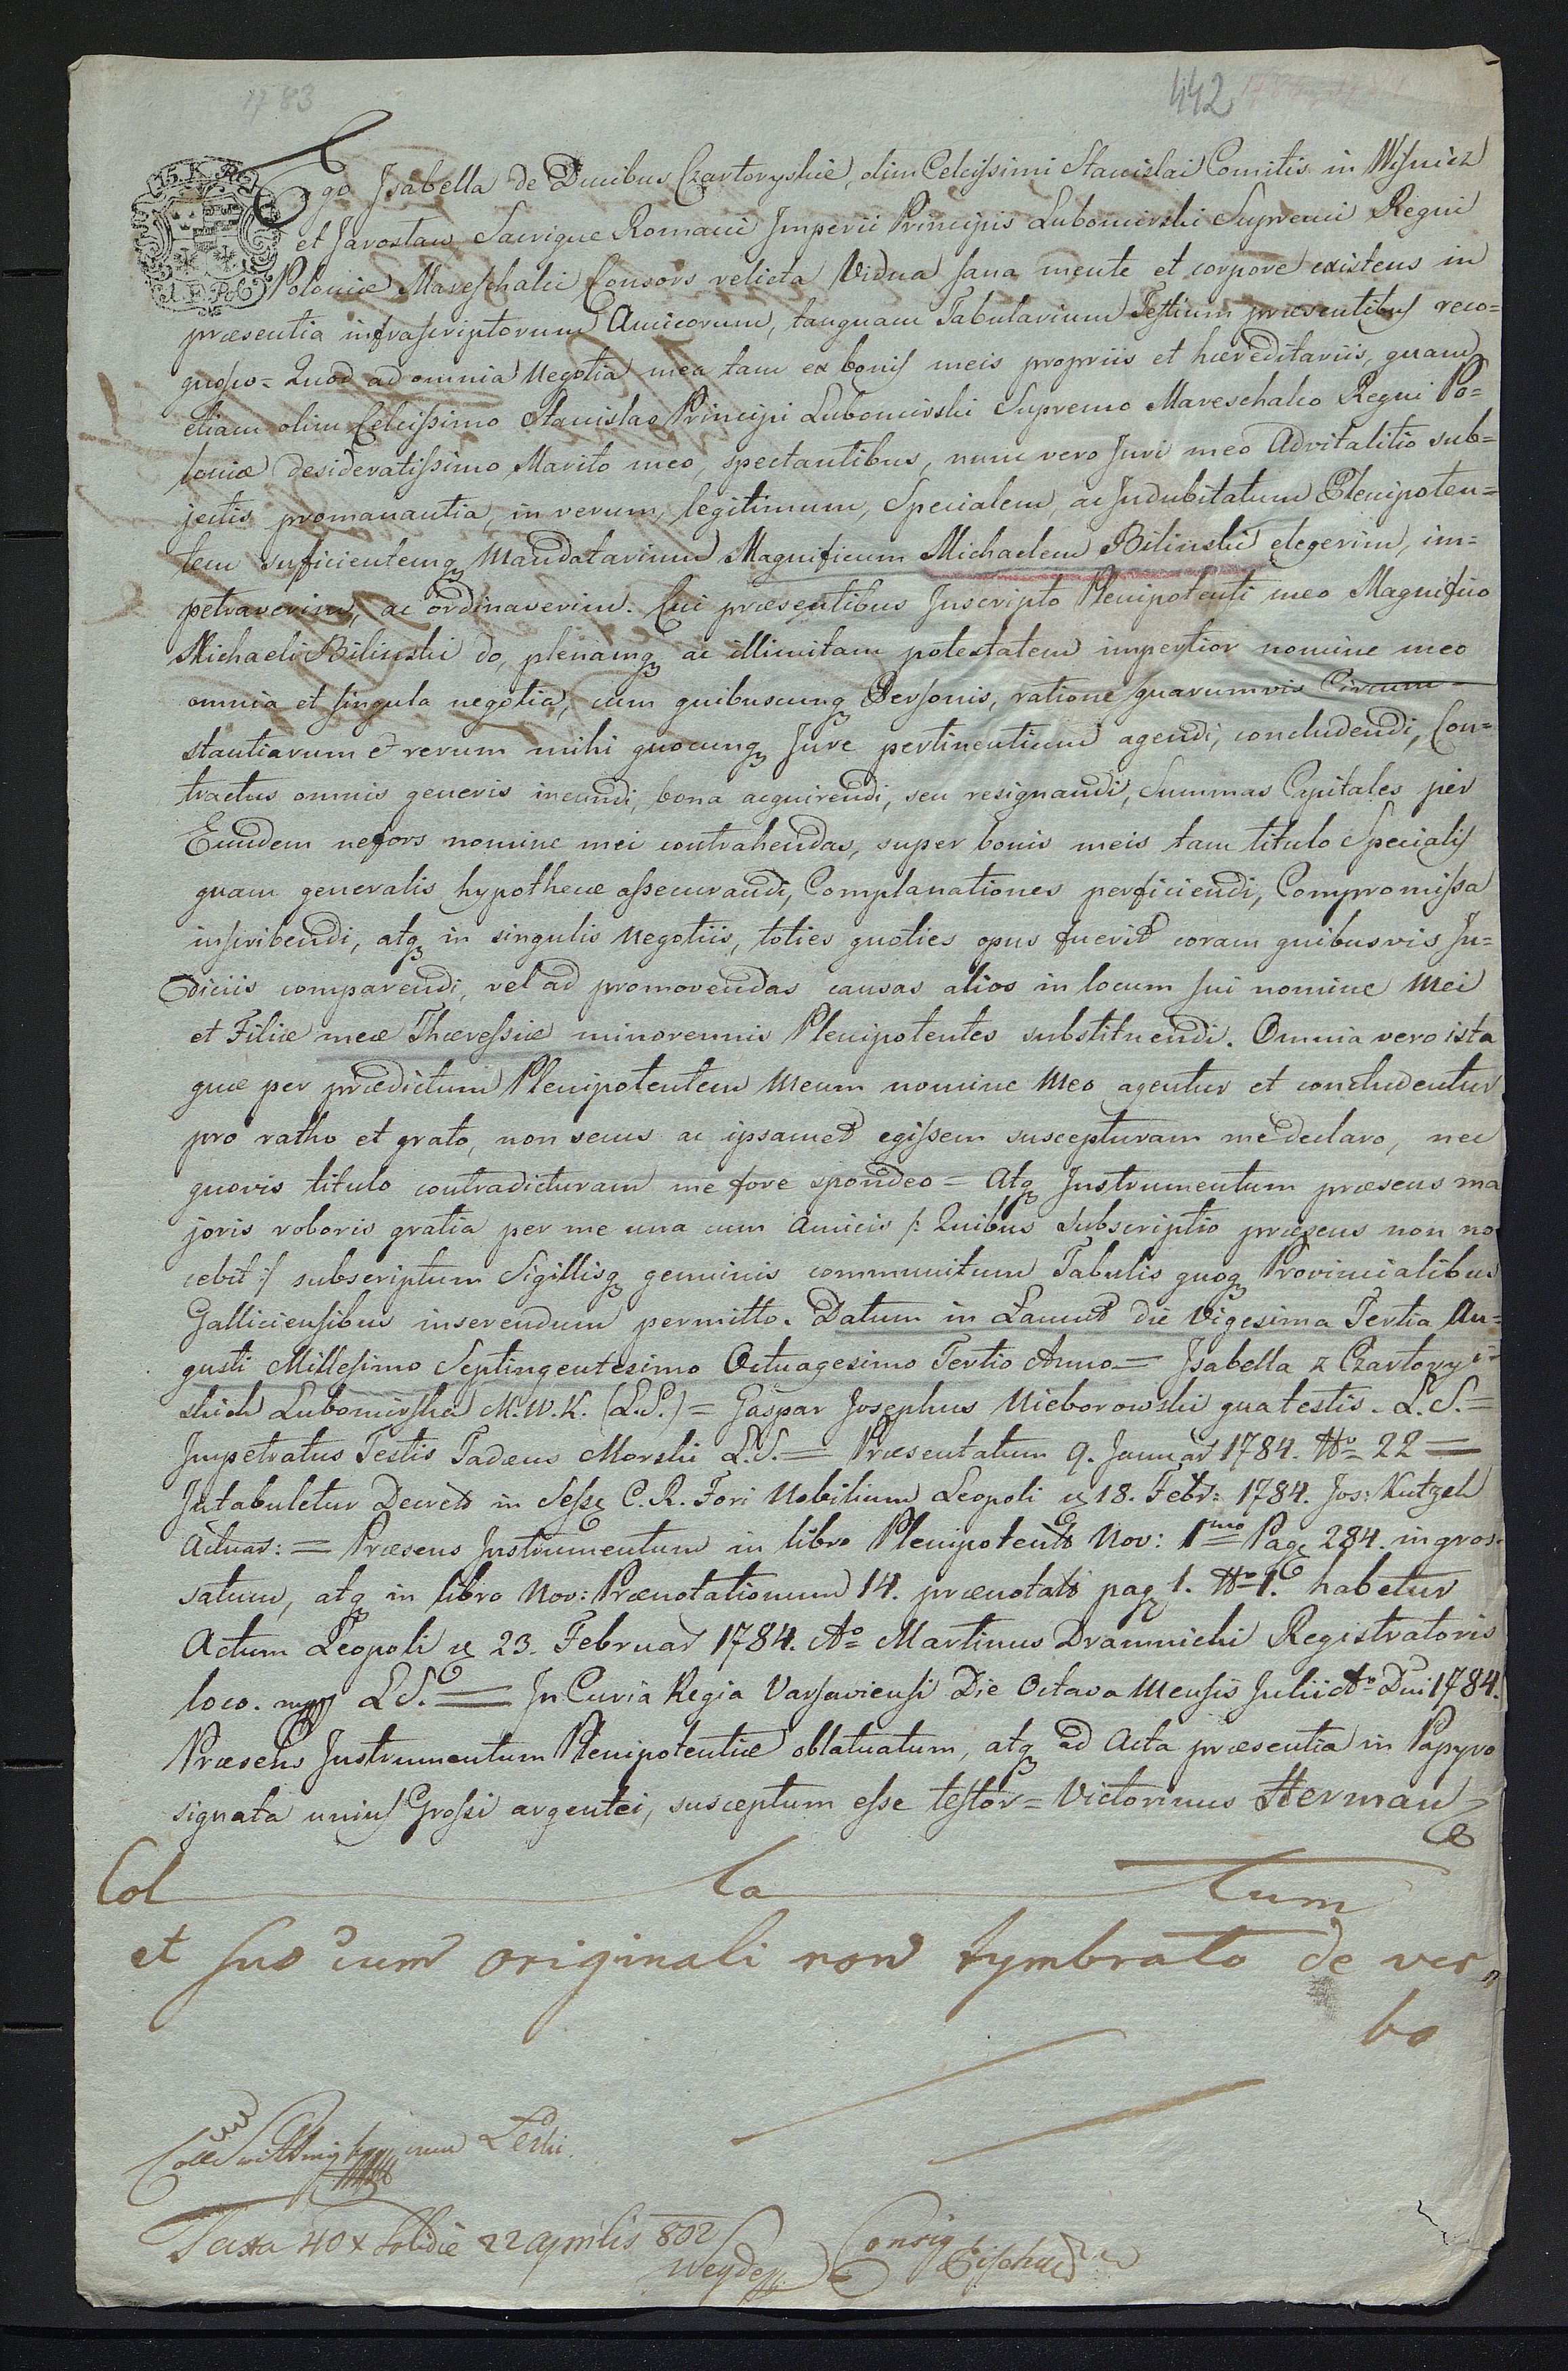 1783
442
15. K. R.
I. E. P. G.
Ego Isabella de Ducibus Czartoryskie, olim Celcissimi Stanislai Comitis in Wisnicz
et Jaroslaw Sacrique Romani Imperii Principis Lubomirski Supremi Regni
Poloniæ Mareschalci Consors relicta Vidua sana mente et corpore existens in
præsentia infrascriptorum Amicorum, tanquam Tabularium Testium præsentibus reco=
gnosco= Quod ad omnia Negotia mea tam ex bonis meis propriis et hæreditariis, quam
etiam olim Celcissimo Stanislao Principi Lubomirski Supremo Mareschalco Regni Po=
loniæ desideratissimo Marito meo, spectantibus, nunc vero Juri meo Advitalitio sub=
jectis promanantia, in verum, legitimum, Specialem, ac Indubitatum Plenipoten=
tem suficientemq3 Mandatarium Magnificum Michaelem Bilinski elegerim, im=
petraverim, ac ordinaverim. Cui præsentibus Inscripto Plenipotenti meo Magnifico
Michaeli Bilinski do, plenamq3 ac illimitam potestatem impertior nomine meo
omnia et singula negotia, cum quibuscunq3 Personis, ratione quarumvis Circum=
stantiarum et rerum mihi quocunq3 Jure pertinentium agendi, concludendi, Con=
tractus omnis generis ineundi, bona acquirendi, seu resignandi, Summas Capitales per
Eundem nefors nomine mei contrahendas, super bonis meis tam titulo Specialis
quam generalis hypothecæ assecurandi, Complanationes perficiendi, Compromissa
inscribendi, atq3 in singulis Negotiis, toties quoties opus fuerit coram quibusvis Ju=
diciis comparendi, vel ad promovendas causas alios in locum sui nomine Mei
et Filiæ meæ Thæressiæ minorennis Plenipotentes substituendi. Omnia vero ista
quæ per prædictum Plenipotentem Meum nomine Meo agentur et concludentur
pro ratho et grato, non secus ac ipsamet egissem suscepturam me declaro, nec
quovis titulo contradicturam me fore spondeo= Atq3 Instrumentum præsens ma
joris roboris gratia per me una cum Amicis /: Quibus Subscriptio præsens non no
cebit :/ subscriptum Sigillisq3 genuinis communitum Tabulis quoq3 Provincialibus
Galliciensibus inserendum permitto. Datum in Lancut die Vigesima Tertia Au=
gusti Millesimo Septingentesimo Octuagesimo Tertio Anno= Isabella z Czartory=
skich Lubomirska M. W. K. (L.S.)= Gaspar Josephus Nieborowski qua testis. L.S.=
Impetratus Testis Tadæus Morski L.S.= Præsentatum 9. Januar 1784. No 22=
Intabuletur Decreto in Sesse C. R. Fori Nobilium Leopoli 18. Febr: 1784. Jos: Kutzel
Actuar:= Præsens Instrumentum in libro Plenipotent Nov: 1mo Page 284. ingros=
satum, atq3 in libro Nov: Prænotationum 14. prænotat pag 1. No 1. habetur
Actum Leopoli 23. Februar 1784. Ao Martinus Dramnicki Registratoris
loco. mpp LS.= In Curia Regia Varsaviensi Die Octava Mensis Julii Ao Dni 1784.
Præsens Instrumentum Plenipotentiæ oblatuatum, atq3 ad Acta præsentia in Papyro
signata unius Grossi argentei, susceptum esse testor= Victorinus Herman
Col la tum
et suo cum originali non tymbrato de ver=
bo
Taxa 40 x Solidæ 22 Aprilis 802
Consig